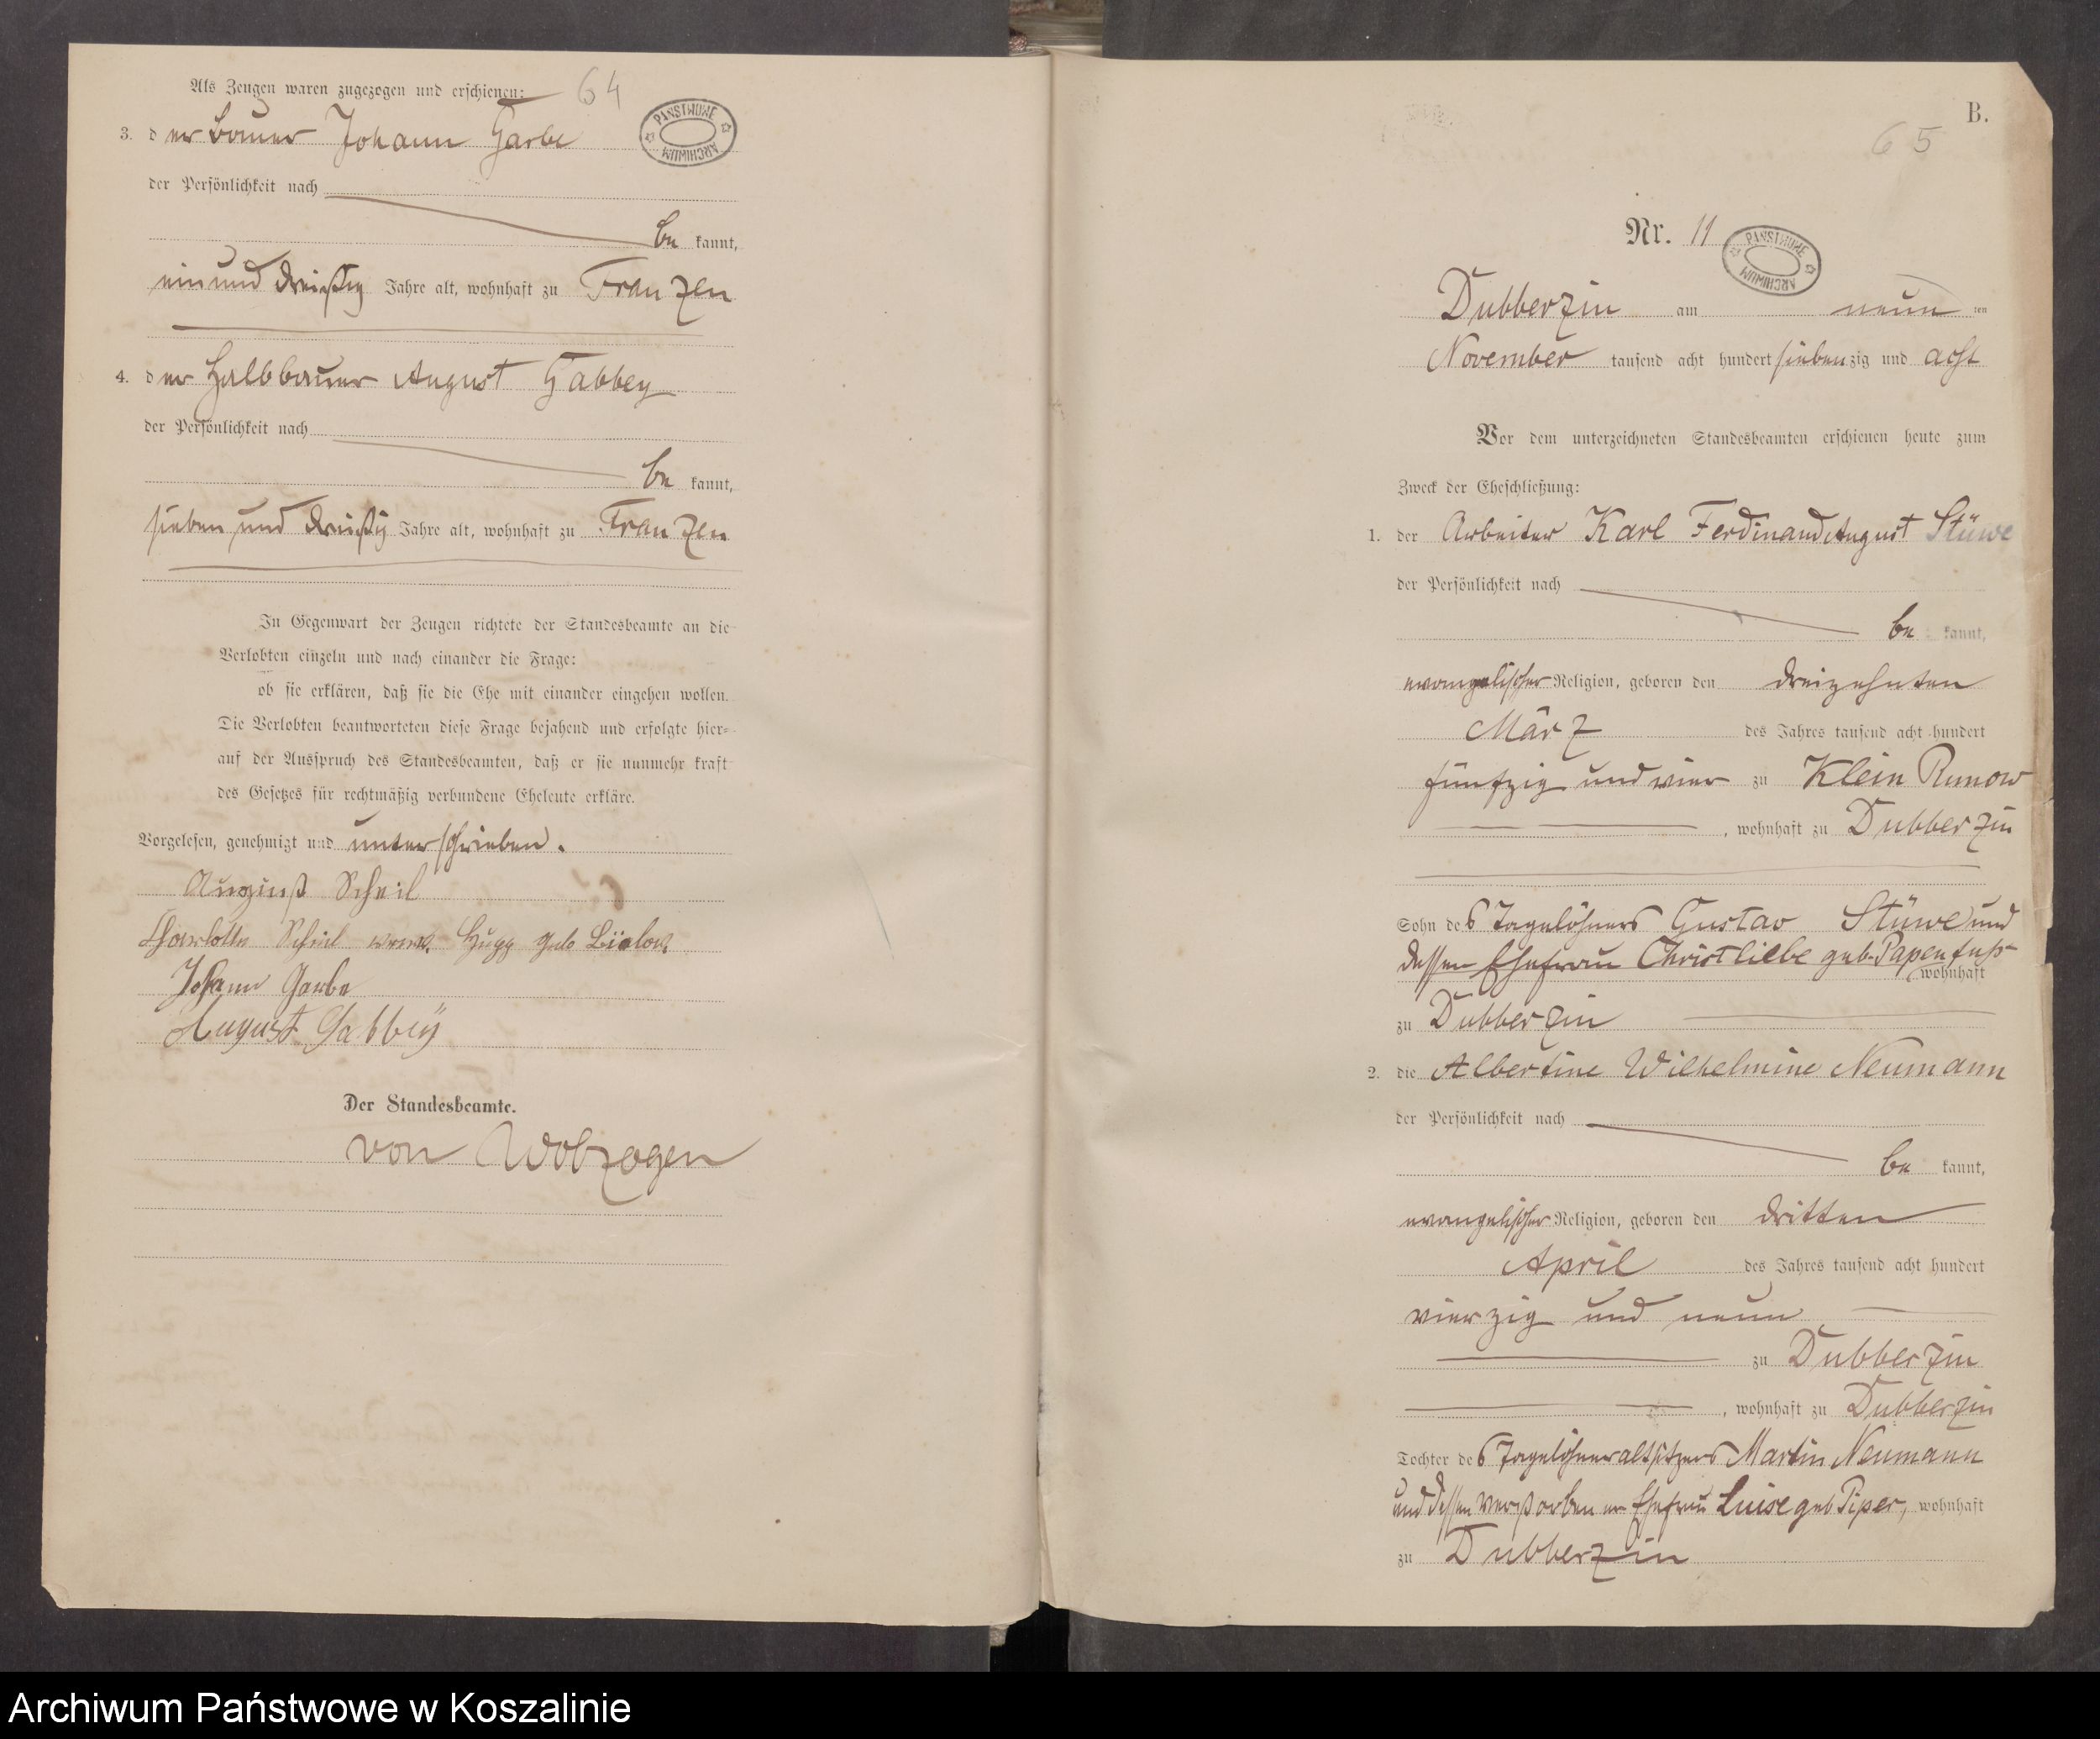 Als Zeugen waren zugezogen und erschienen:
64
PAŃSTWOWE ARCHIWUM
3. der Bauer Johann Garbe
der Persönlichkeit nach
be kannt,
ein und dreißig Jahre alt, wohnhaft zu Franzen
4. der Halbbauer August Gabbey
der Persönlichkeit nach
be kannt,
sieben und dreißig Jahre alt, wohnhaft zu Franzen
In Gegenwart der Zeugen richtete der Standesbeamte an die
Verlobten einzeln und nach einander die Frage:
ob sie erklären, daß sie die Ehe mit einander eingehen wollen.
Die Verlobten beantworteten diese Frage bejahend und erfolgte hier=
auf der Ausspruch des Standesbeamten, daß er sie nunmehr kraft
des Gesetzes für rechtmäßig verbundene Eheleute erkläre.
Vorgelesen, genehmigt und unterschrieben.
August Scheil
Charlotte Scheil geb
Johann Garbe
August Gabbey
Der Standesbeamte.
von
B.
65
Nr. 11
PAŃSTWOWE ARCHIWUM
Dubberzin am neun ten
November tausend acht hundert siebenzig und acht
Vor dem unterzeichneten Standesbeamten erschienen heute zum
Zweck der Eheschließung:
1. der Arbeiter Karl Ferdinand August Stüwe
der Persönlichkeit nach
be kannt,
evangelischer Religion, geboren den dreizehnten
März des Jahres tausend acht hundert
fünfzig und vier zu Klein Runow
, wohnhaft zu Dubberzin
Sohn des Tagelöhners Gustav Stüwe und
dessen Ehefrau Christliebe geb. Papenfuß
wohnhaft
zu Dubberzin
2. die Albertine Wilhelmine Neumann
der Persönlichkeit nach
be kannt,
evangelischer Religion, geboren den dritten
April des Jahres tausend acht hundert
vierzig und neun
zu Dubberzin
, wohnhaft zu Dubberzin
Tochter des Tagelöhneraltsitzers Martin Neumann
und dessen verstorbenen Ehefrau Luise geb Piper, wohnhaft
zu Dubberzin
Archiwum Państwowe w Koszalinie